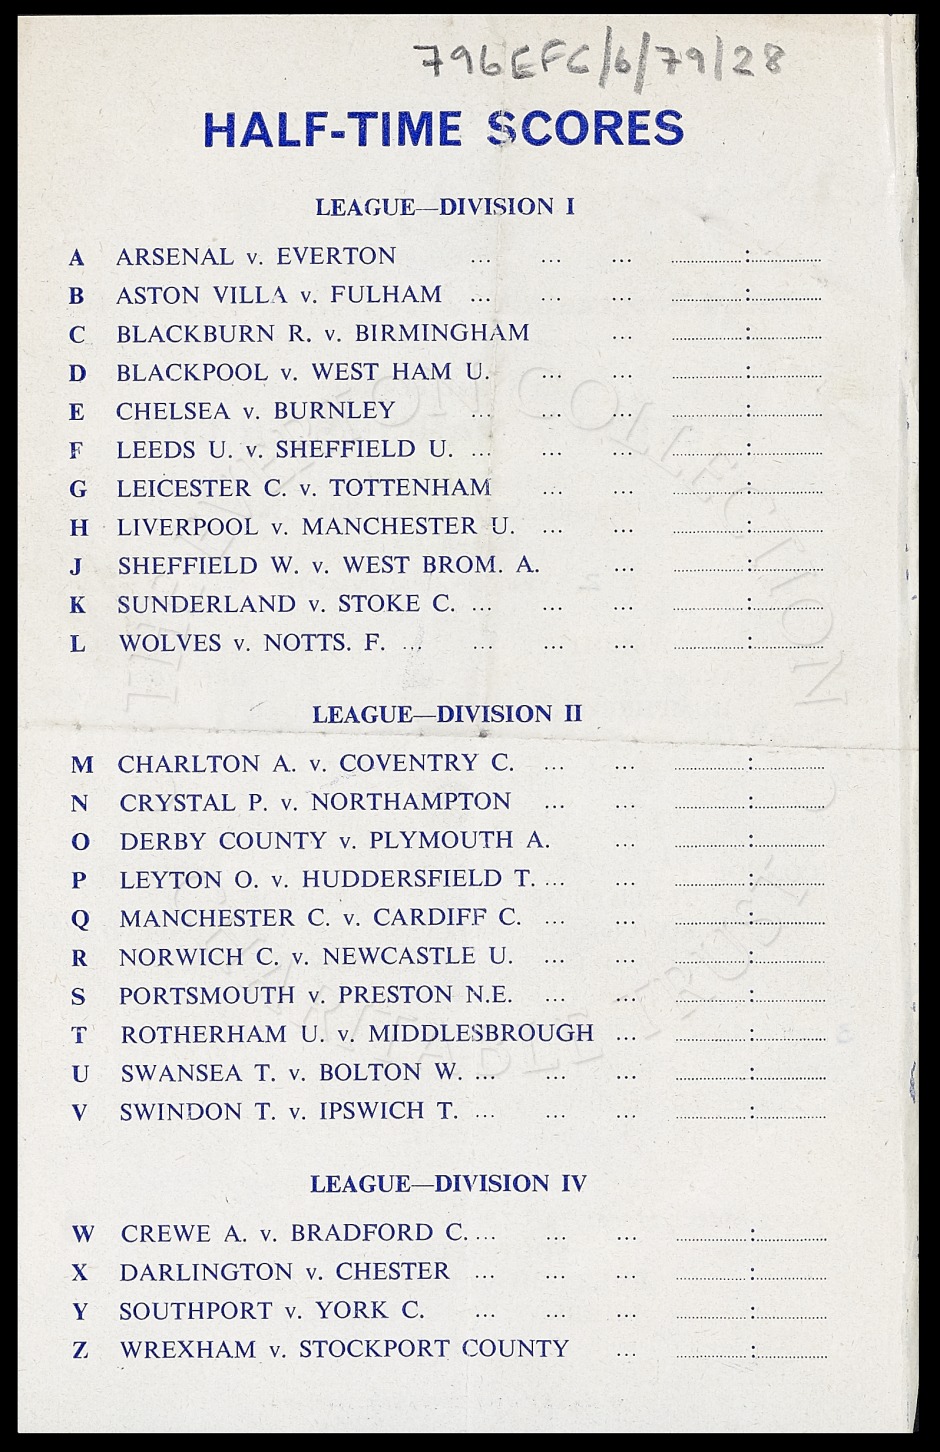 796EFC/6/79/28
HALF-TIME SCORES
LEAGUE—DIVISION I
A ARSENAL v. EVERTON ... ... ... ..................:..................
B ASTON VILLA v. FULHAM ... ... ... ..................:..................
C BLACKBURN R. v. BIRMINGHAM ... ..................:..................
D BLACKPOOL v. WEST HAM U. ... ... ..................:..................
E CHELSEA v. BURNLEY ... ... ... ..................:..................
F LEEDS U. v. SHEFFIELD U. ... ... ... ..................:..................
G LEICESTER C. v. TOTTENHAM ... ... ..................:..................
H LIVERPOOL v. MANCHESTER U. ... ... ..................:..................
J SHEFFIELD W. v. WEST BROM. A. ... ..................:..................
K SUNDERLAND v. STOKE C. ... ... ... ..................:..................
L WOLVES v. NOTTS. F. ... ... ... ... ..................:..................
LEAGUE—DIVISION II
M CHARLTON A. v. COVENTRY C. ... ... ..................:..................
N CRYSTAL P. v. NORTHAMPTON ... ... ..................:..................
O DERBY COUNTY v. PLYMOUTH A. ... ..................:..................
P LEYTON O. v. HUDDERSFIELD T. ... ... ..................:..................
Q MANCHESTER C. v. CARDIFF C. ... ... ..................:..................
R NORWICH C. v. NEWCASTLE U. ... ... ..................:..................
S PORTSMOUTH v. PRESTON N.E. ... ... ..................:..................
T ROTHERHAM U. v. MIDDLESBROUGH ... ..................:..................
U SWANSEA T. v. BOLTON W. ... ... ... ..................:..................
V SWINDON T. v. IPSWICH T. ... ... ... ..................:..................
LEAGUE—DIVISION IV
W CREWE A. v. BRADFORD C. ... ... ... ..................:..................
X DARLINGTON v. CHESTER ... ... ... ..................:..................
Y SOUTHPORT v. YORK C. ... ... ... ..................:..................
Z WREXHAM v. STOCKPORT COUNTY ... ..................:..................